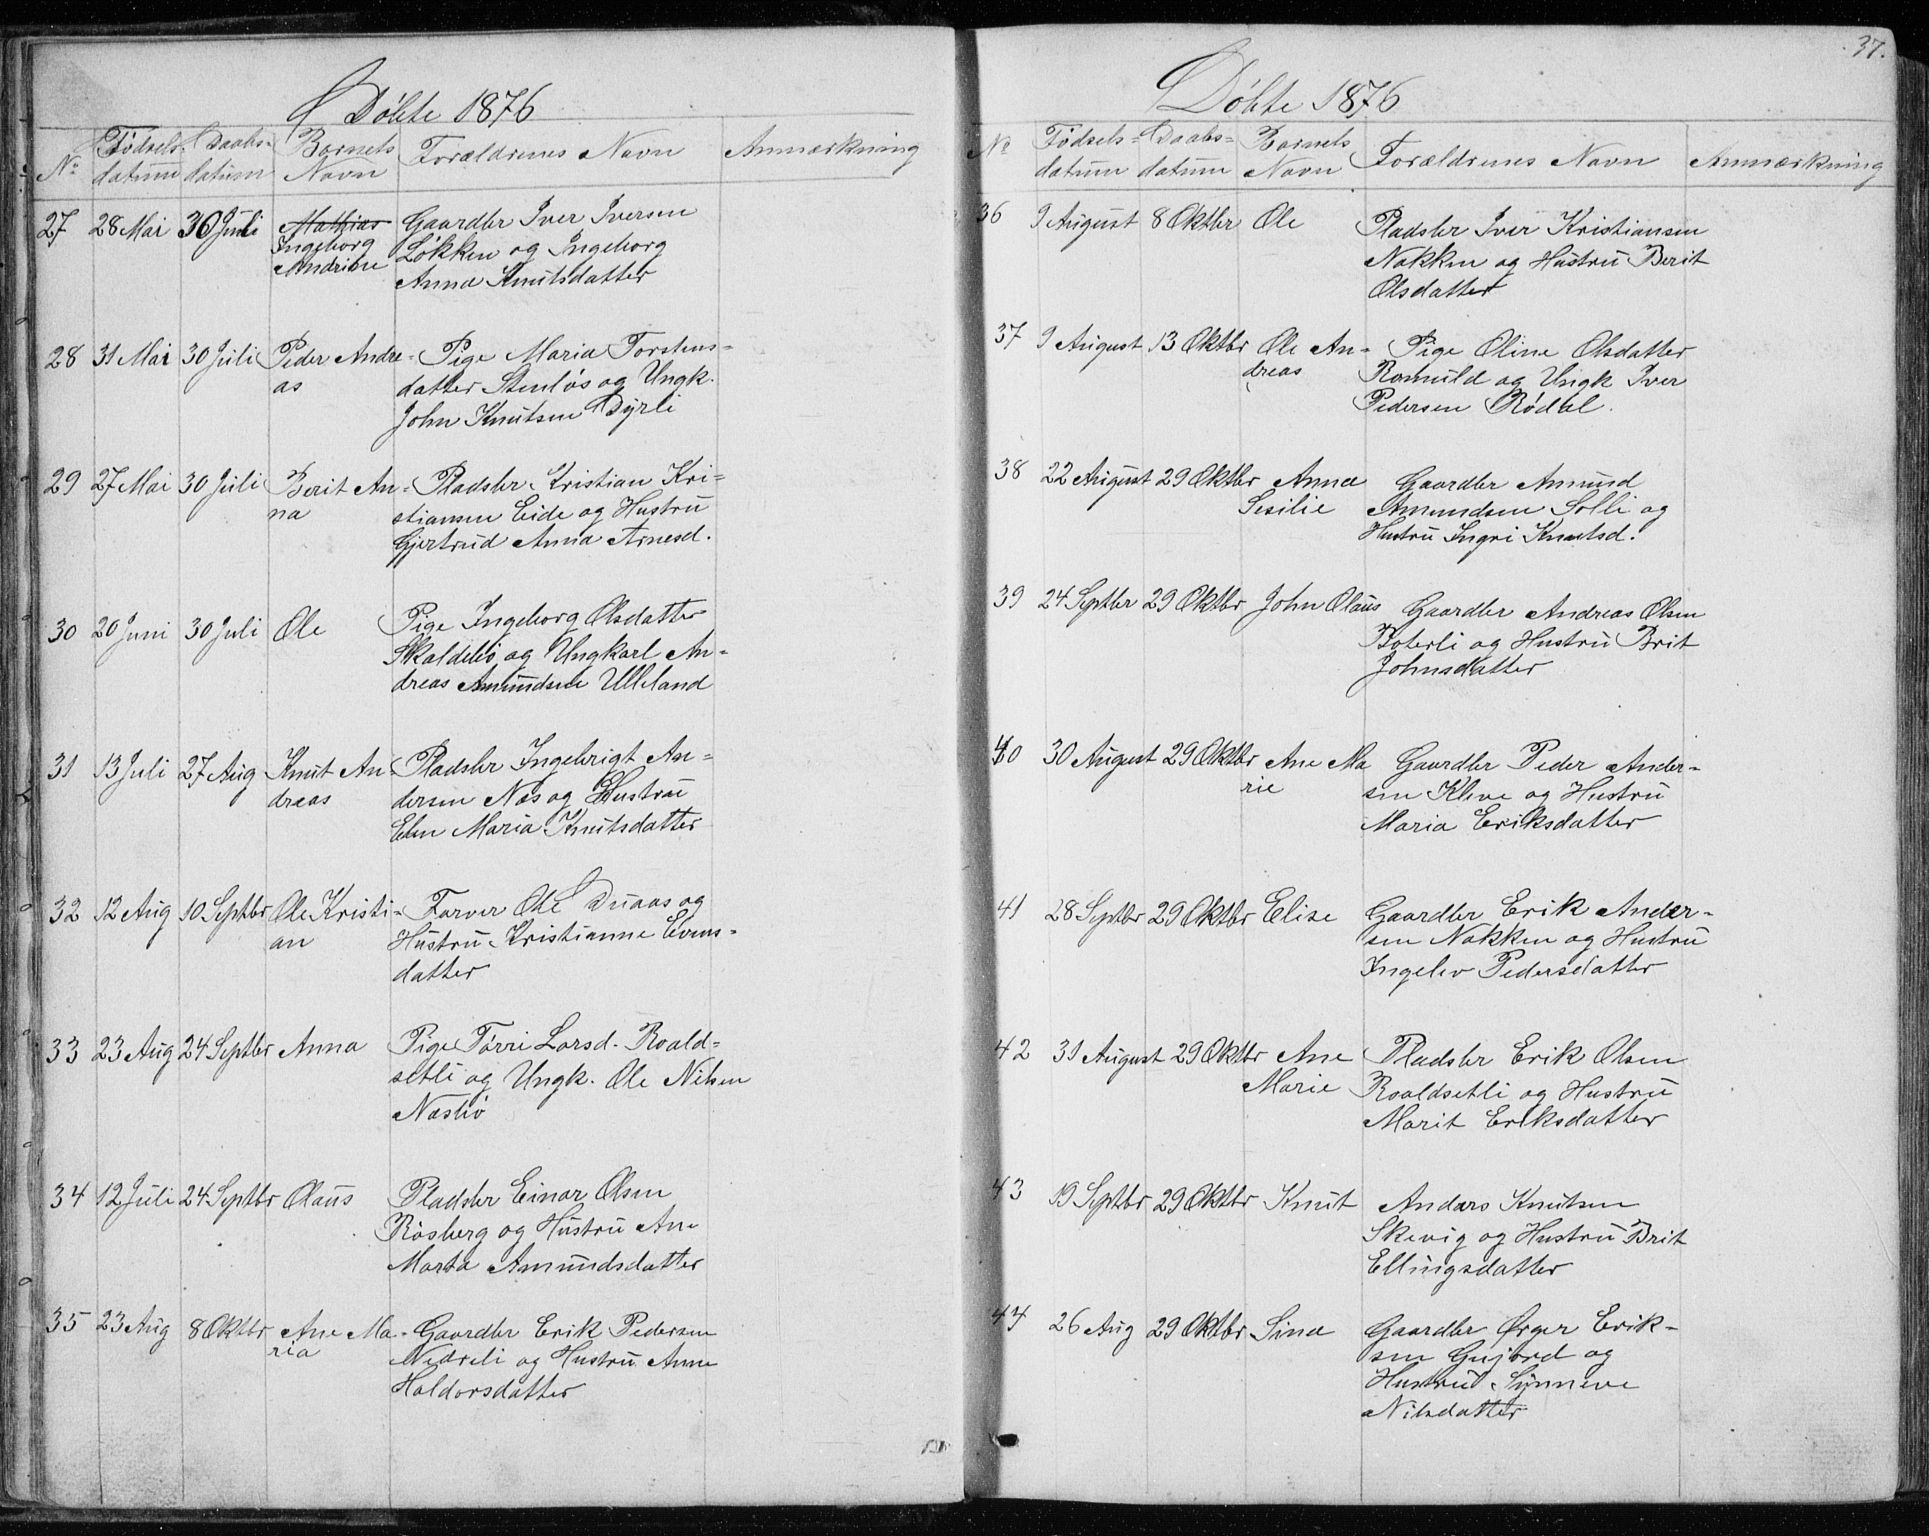 Döbte 1876
No Födsels- datum Daabs- datum Barnets Navn Forældrenes Navn Anmærkning
27 28 Mai 30 Juli Mathias Gaardbr Iver Iversen
Ingeborg Løkken og Ingeborg
Andrine Anna Knutsdatter
28 31 Mai 30 Juli Peder Andre- Pige Maria Torstens-
as datter Stenløs og Ungk.
John Knutsen Dyrli
29 27 Mai 30 Juli Berit An- Pladsbr Kristian Kri-
na stiansen Eide og Hustru
Gjertrud Anna Arnesd.
30 20 Juni 30 Juli Ole Pige Ingeborg Olsdatter
Skaldebø og Ungkarl An-
dreas Amundsen Ulleland
31 13 Juli 27 Aug Knut An- Pladsbr Ingebrigt An-
dreas dersen Næs og Hustru
Elen Maria Knutsdatter
32 12 Aug 10 Septbr Ole Kristi- Farver Ole Duaas og
an Hustru Kristianne Evens-
datter
33 23 Aug 24 Septbr Anna Pige Torri Larsd. Roald-
setli og Ungk. Ole Nilsen
Næsbø
34 12 Juli 24 Septbr Olaus Pladsbr Einar Olsen
Røsberg og Hustru Ane
Marta Amundsdatter
35 23 Aug 8 Oktbr Ane Ma- Gaardbr Erik Pedersen
ria Nedreli og Hustru Anne
Haldorsdatter
37.
Döbte 1876
No Födsels- datum Daabs- datum Barnets Navn Forældrenes Navn Anmærkning
36 9 August 8 Oktbr Ole Pladsbr Iver Kristiansen
Nakken og Hustru Berit
Olsdatter
37 9 August 13 Oktbr Ole An- Pige Oline Olsdatter
dreas Romuld og Ungk Iver
Pedersen Rødal.
38 22 August 29 Oktbr Anna Gaardbr Amund
Sesilie Amundsen Solli og
Hustru Ingri Knutsd.
39 24 Septbr 29 Oktbr John Olaus Gaardbr Andreas Olsen
Boterli og Hustru Brit
Johnsdatter
40 30 August 29 Oktbr Ane Ma Gaardbr Peder Ander-
rie sen Kleve og Hustru
Maria Eriksdatter
41 28 Septbr 29 Oktbr Elise Gaardbr Erik Ander-
sen Nakken og Hustru
Ingelev Pedersdatter
42 31 August 29 Oktbr Ane Pladsbr Erik Olsen
Marie Roaldsetli og Hustru
Marit Eriksdatter
43 19 Septbr 29 Oktbr Knut Anders Knutsen
Skevig og Hustru Brit
Ellingsdatter
44 26 Aug 29 Oktbr Sina Gaardbr Ørger Erik-
sen Gujord og
Hustru Synneve
Nilsdatter